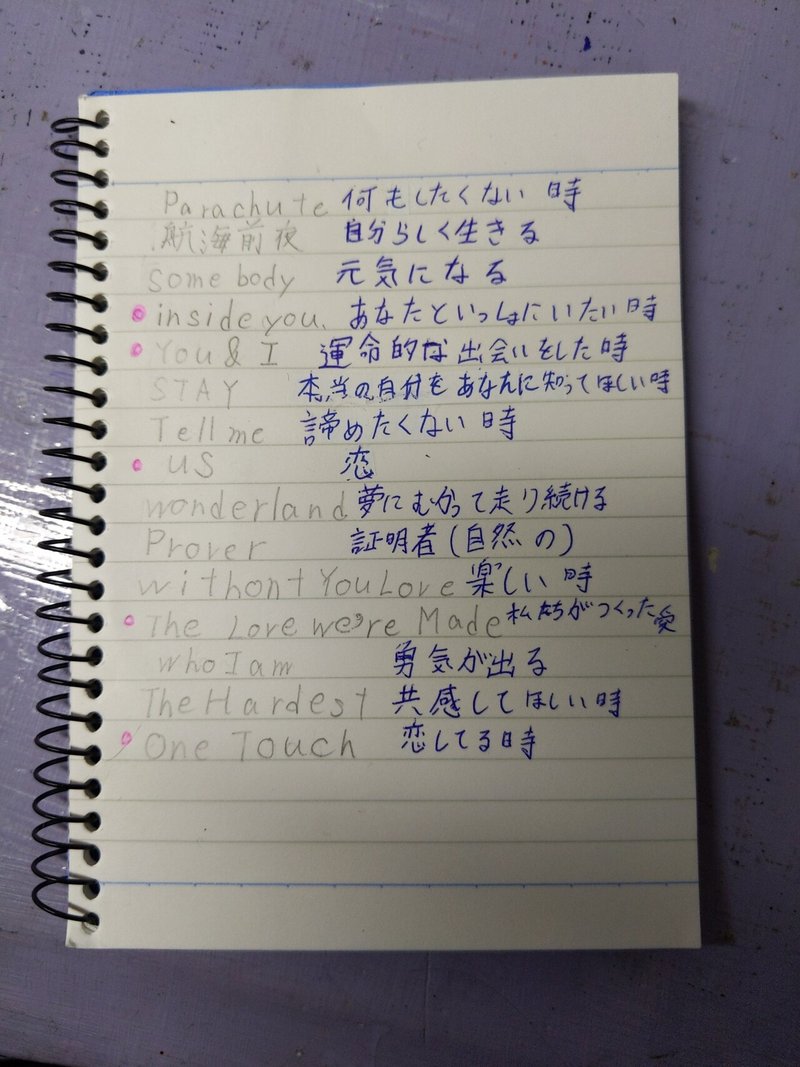 Parachute 何もしたくない時
航海前夜 自分らしく生きる
Some body 元気になる
inside you. あなたといっしょにいたい時
You & I 運命的な出会いをした時
STAY 本当の自分をあなたに知ってほしい時
Tell me 諦めたくない時
US 恋
wonderland 夢にむかって走り続ける
Prover 証明者(自然の)
withont You Love 楽しい時
The Love we're Made 私たちがつくった愛
who I am 勇気が出る
The Hardest 共感してほしい時
One Touch 恋してる時